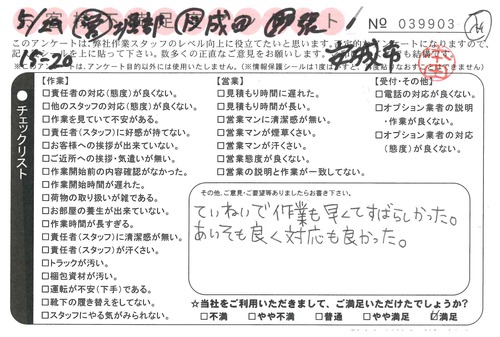 No 039903
このアンケートは、弊社作業スタッフのレベル向上に役立てたいと思います。
【作業】
□責任者の対応(態度)が良くない。
□他のスタッフの対応(態度)が良くない。
□作業を見ていて不安がある。
□責任者(スタッフ)に好感が持てない。
□お客様への挨拶が出来ていない。
□ご近所への挨拶・気遣いが無い。
□作業開始前の内容確認がなかった。
□作業開始時間が遅れた。
□荷物の取り扱いが雑である。
□お部屋の養生が出来ていない。
□作業時間が長すぎる。
□責任者(スタッフ)に清潔感が無い。
□責任者(スタッフ)が汗くさい。
□トラックが汚い。
□梱包資材が汚い。
□運転が不安(下手)である。
□靴下の履き替えをしてない。
□スタッフにやる気がみられない。
【営業】
□見積もり時間に遅れた。
□見積もり時間が長い。
□営業マンに清潔感が無い。
□営業マンが煙草くさい。
□営業マンが汗くさい。
□営業態度が良くない。
□営業の説明と作業が一致してない。
【受付・その他】
□電話の対応が良くない。
□オプション業者の説明
・作業が良くない。
□オプション業者の対応
(態度)が良くない。
チェックリスト
その他、ご意見・ご要望等ありましたらお書き下さい。
ていねいで作業も早くてすばらしかった。
あいそも良く対応も良かった。
☆当社をご利用いただきまして、ご満足いただけたでしょうか?
□不満 □やや不満 □普通 □やや満足 ☑満足